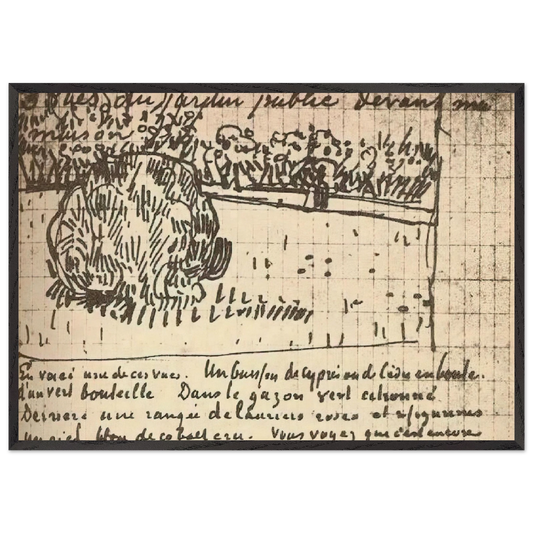 vues du jardin public devant ma
maison
En voici une de ces vues. Un buisson de cyprès ou de cèdre en boule.
d'un vert bouteille Dans le gazon vert citronné
Derriere une rangée de lauriers roses et 2 figurines
un ciel bleu de cobalt cru. Vous voyez que c'est encore